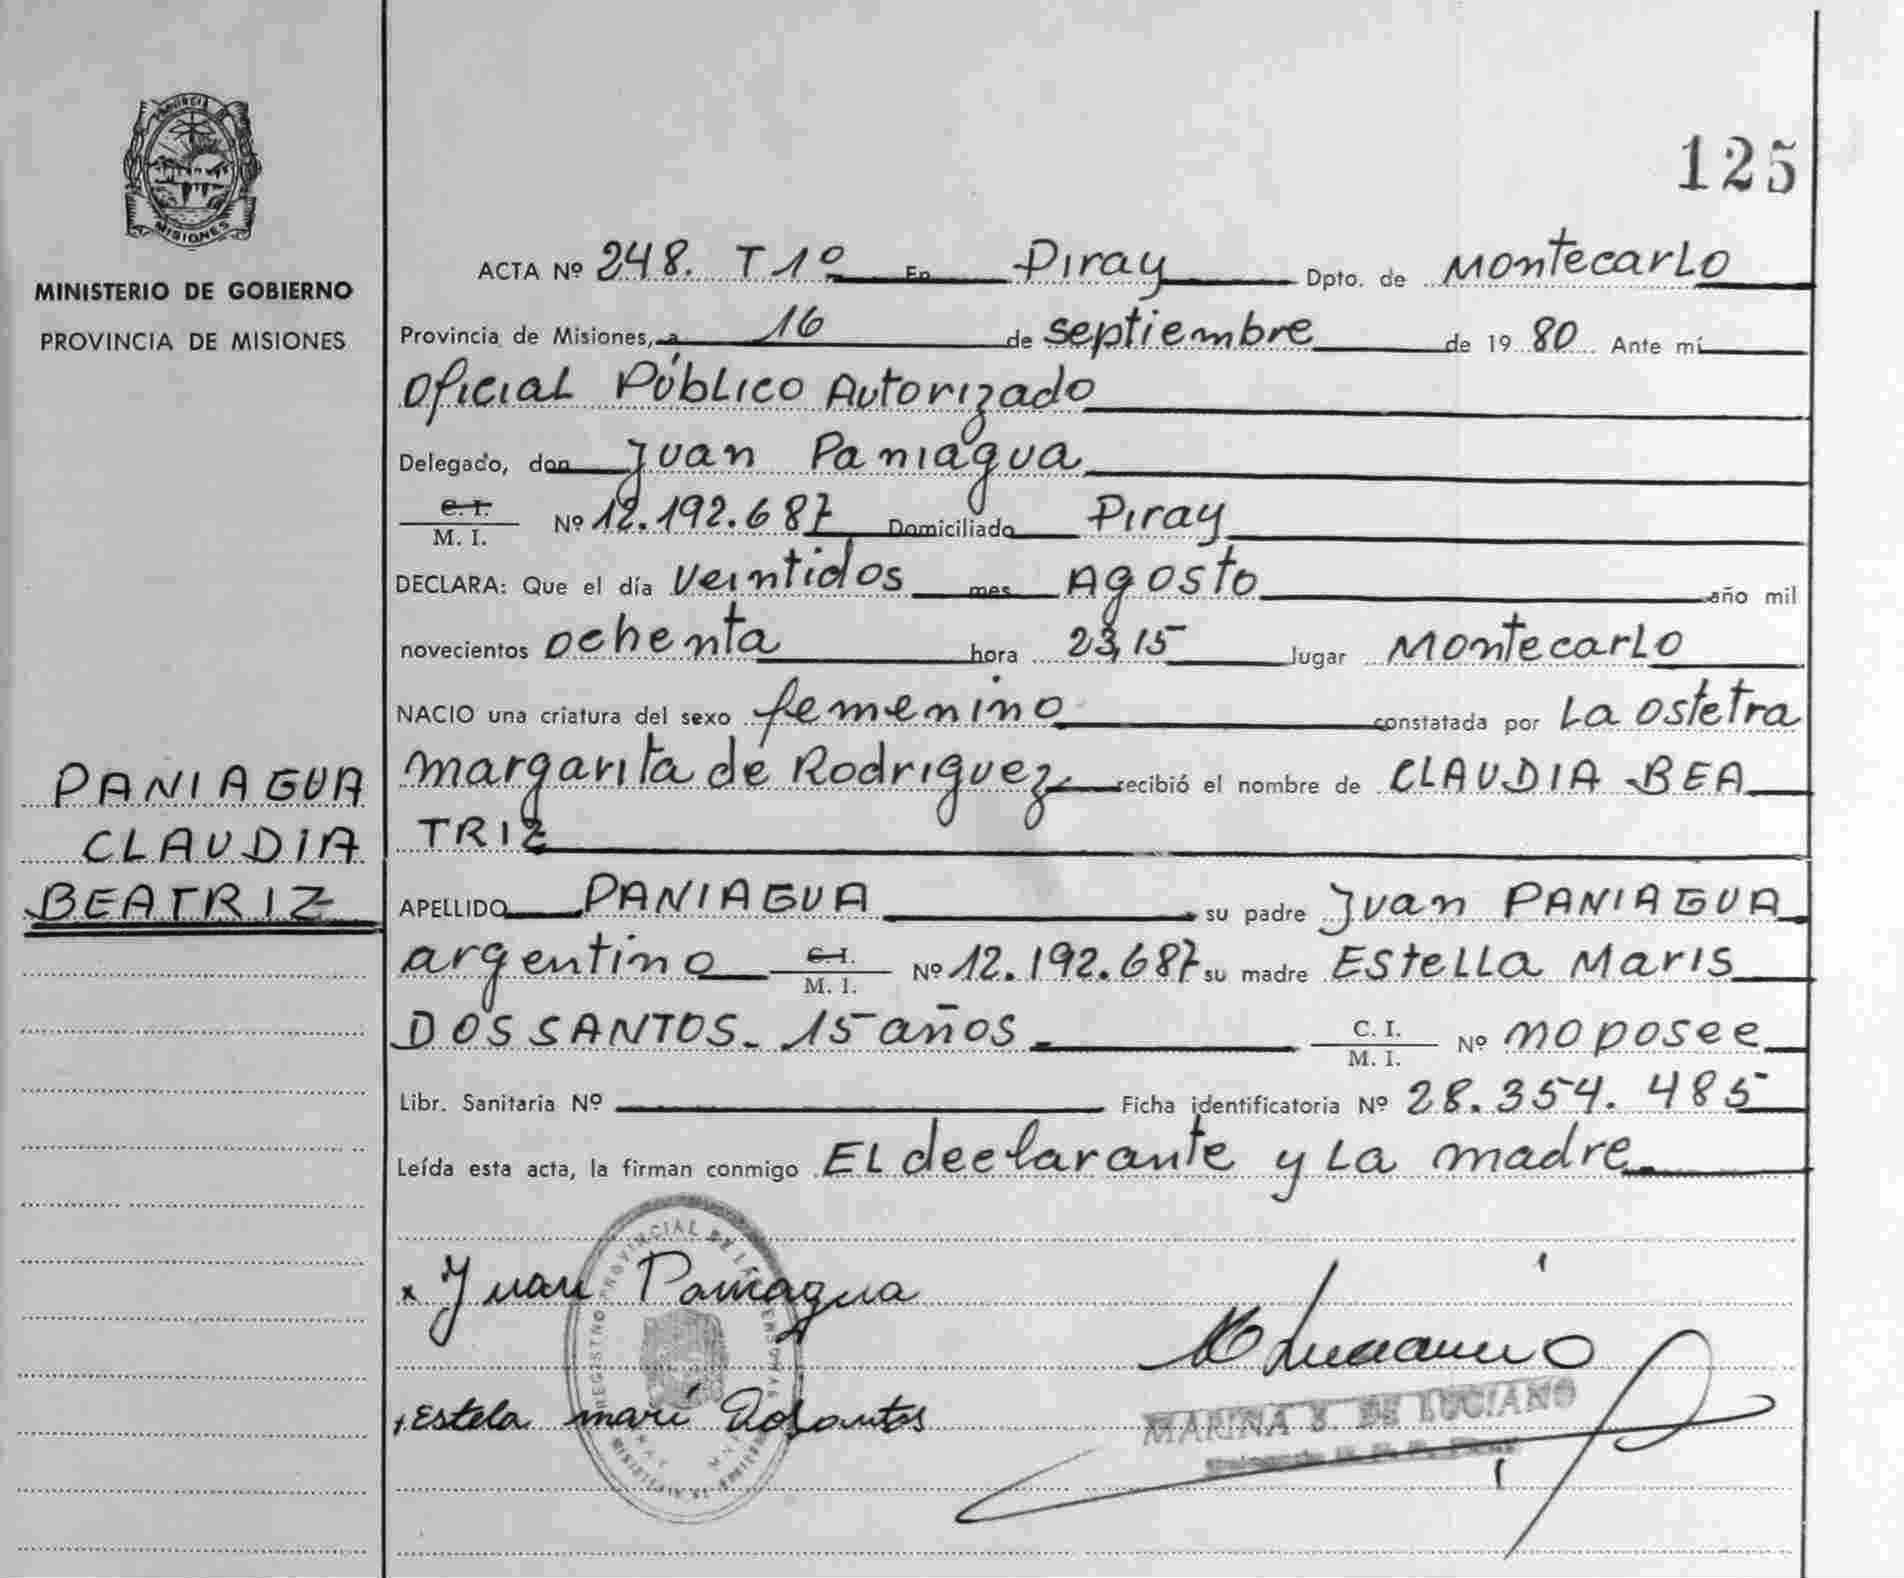 PROVINCIA DE
MISIONES
MINISTERIO DE GOBIERNO
PROVINCIA DE MISIONES
PANIAGUA
CLAUDIA
BEATRIZ
125
ACTA Nº 248. T 1º En Piray Dpto. de Montecarlo
Provincia de Misiones, a 16 de septiembre de 1980 Ante mí
Oficial Público Autorizado
Delegado, don Juan Paniagua
C. I. / M. I. Nº 12.192.687 Domiciliado Piray
DECLARA: Que el día veintidos mes Agosto año mil
novecientos ochenta hora 23,15 lugar Montecarlo
NACIO una criatura del sexo femenino constatada por La ostetra
Margarita de Rodriguez recibió el nombre de CLAUDIA BEA
TRIZ
APELLIDO PANIAGUA su padre Juan PANIAGUA
argentino C. I. / M. I. Nº 12.192.687 su madre Estella Maris
DOS SANTOS. 15 años C. I. / M. I. Nº no posee
Libr. Sanitaria Nº Ficha identificatoria Nº 28.354.485
Leída esta acta, la firman conmigo El declarante y La madre
x Juan Paniagua
Estela mari Dosantos
REGISTRO PROVINCIAL DE LAS PERSONAS
MARINA DE LUCIANO